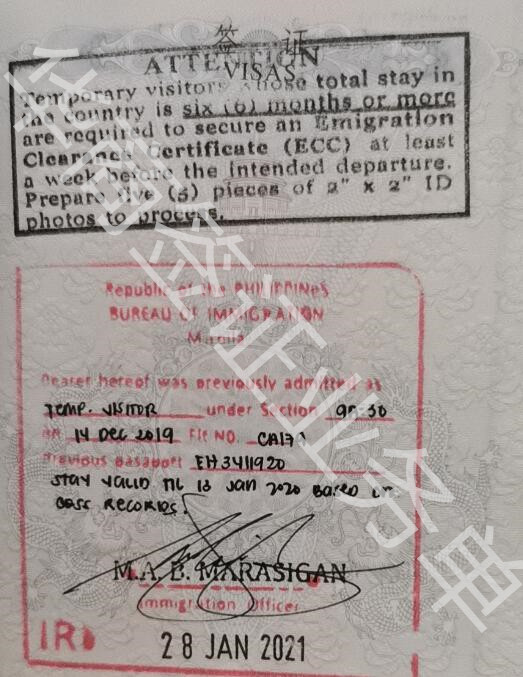 签 证
ATTENTION
VISAS
Temporary visitors whose total stay in
the country is six (6) months or more
are required to secure an Emigration
Clearance Certificate (ECC) at least
a week before the intended departure.
Prepare five (5) pieces of 2" x 2" ID
photos to process.
Republic of the PHILIPPINES
BUREAU OF IMMIGRATION
Manila
Bearer hereof was previously admitted as
TEMP. VISITOR under Section 9A-30
on 14 DEC 2019 File NO. CA17
Previous Passport EH3411920
STAY VALID TIL 13 JAN 2020 BASED ON
BASC RECORDS.
M.A. B. MARASIGAN
Immigration Officer
IRD
28 JAN 2021
签证业务单